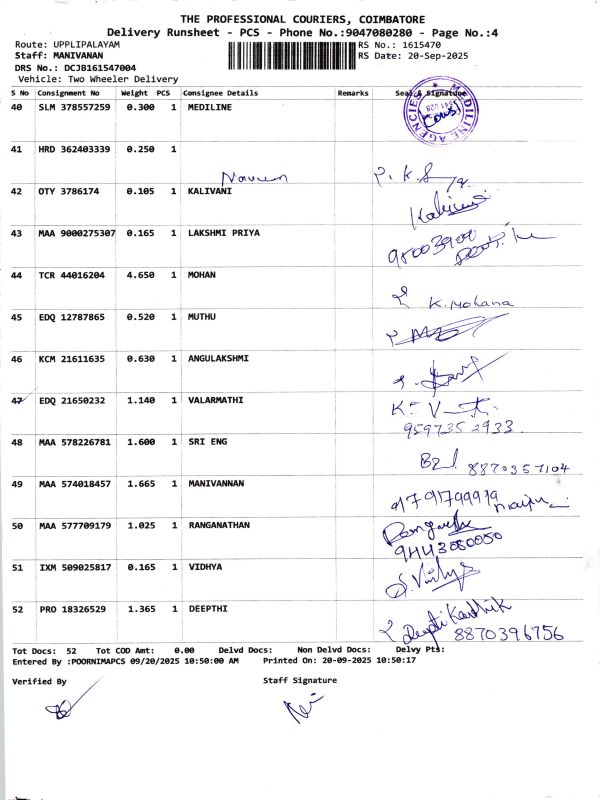 THE PROFESSIONAL COURIERS, COIMBATORE
Delivery Runsheet - PCS - Phone No.:9047080280 - Page No.:4
Route: UPPLIPALAYAM RS No.: 1615470
Staff: MANIVANAN RS Date: 20-Sep-2025
DRS No.: DCJB161547004
Vehicle: Two Wheeler Delivery
S No Consignment No Weight PCS Consignee Details Remarks Seal & Signature
40 SLM 378557259 0.300 1 MEDILINE
MEDILINE AGENCIES
41 HRD 362403339 0.250 1
Naveen
42 OTY 3786174 0.105 1 KALIVANI
43 MAA 9000275307 0.165 1 LAKSHMI PRIYA
44 TCR 44016204 4.650 1 MOHAN
K. Mohana
45 EDQ 12787865 0.520 1 MUTHU
46 KCM 21611635 0.630 1 ANGULAKSHMI
47 EDQ 21650232 1.140 1 VALARMATHI
9597352933
48 MAA 578226781 1.600 1 SRI ENG
8870357104
49 MAA 574018457 1.665 1 MANIVANNAN
50 MAA 577709179 1.025 1 RANGANATHAN
51 IXM 509025817 0.165 1 VIDHYA
S. Vidhya
52 PRO 18326529 1.365 1 DEEPTHI
Deepti Karthik
8870396756
Tot Docs: 52 Tot COD Amt: 0.00 Delvd Docs: Non Delvd Docs: Delvy Pts:
Entered By :POORNIMAPCS 09/20/2025 10:50:00 AM Printed On: 20-09-2025 10:50:17
Verified By Staff Signature